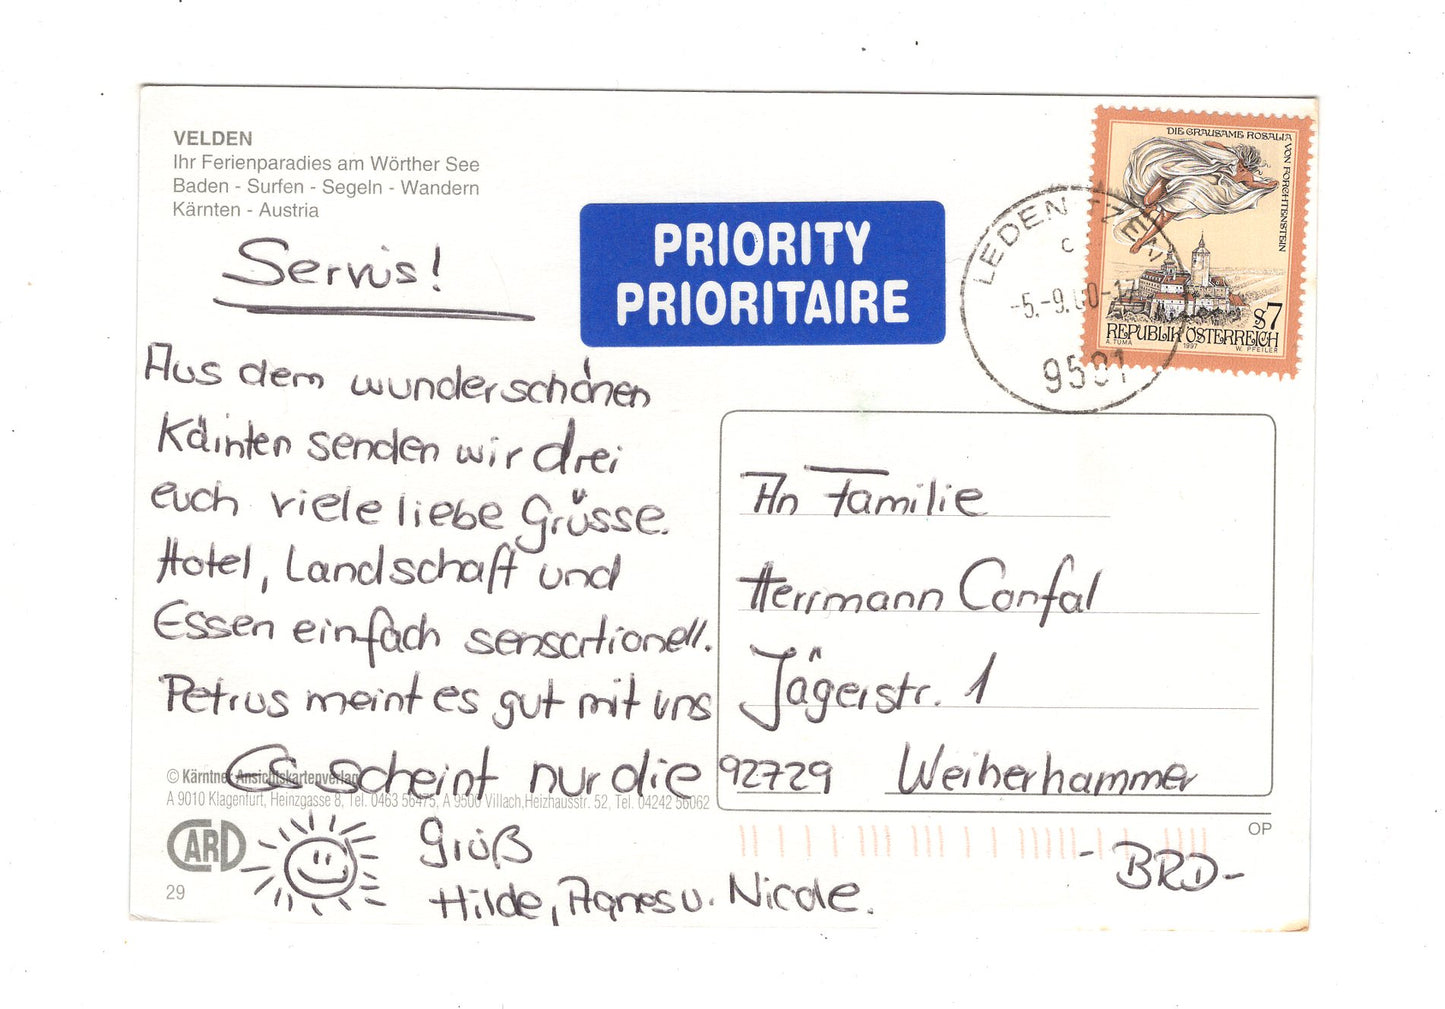 VELDEN
Ihr Ferienparadies am Wörther See
Baden - Surfen - Segeln - Wandern
Kärnten - Austria
Servus!
Aus dem wunderschönen
Kärnten senden wir drei
euch viele liebe Grüsse.
Hotel, Landschaft und
Essen einfach sensationell.
Petrus meint es gut mit uns
Es scheint nur die
Gruß
Hilde, Agnes u. Nicole.
© Kärntner Ansichtskartenverlag
A 9010 Klagenfurt, Heinzgasse 8, Tel. 0463 56475, A 9500 Villach, Heizhausstr. 52, Tel. 04242 56062
CARD
29
PRIORITY
PRIORITAIRE
LEDENITZEN
C
-5.-9.00-17
9581
DIE GRAUSAME ROSALIA VON FORCHTENSTEIN
S7
REPUBLIK ÖSTERREICH
A. TUMA 1997 W. PFEILER
An Familie
Herrmann Confal
Jägerstr. 1
92729 Weiherhammer
OP
- BRD -